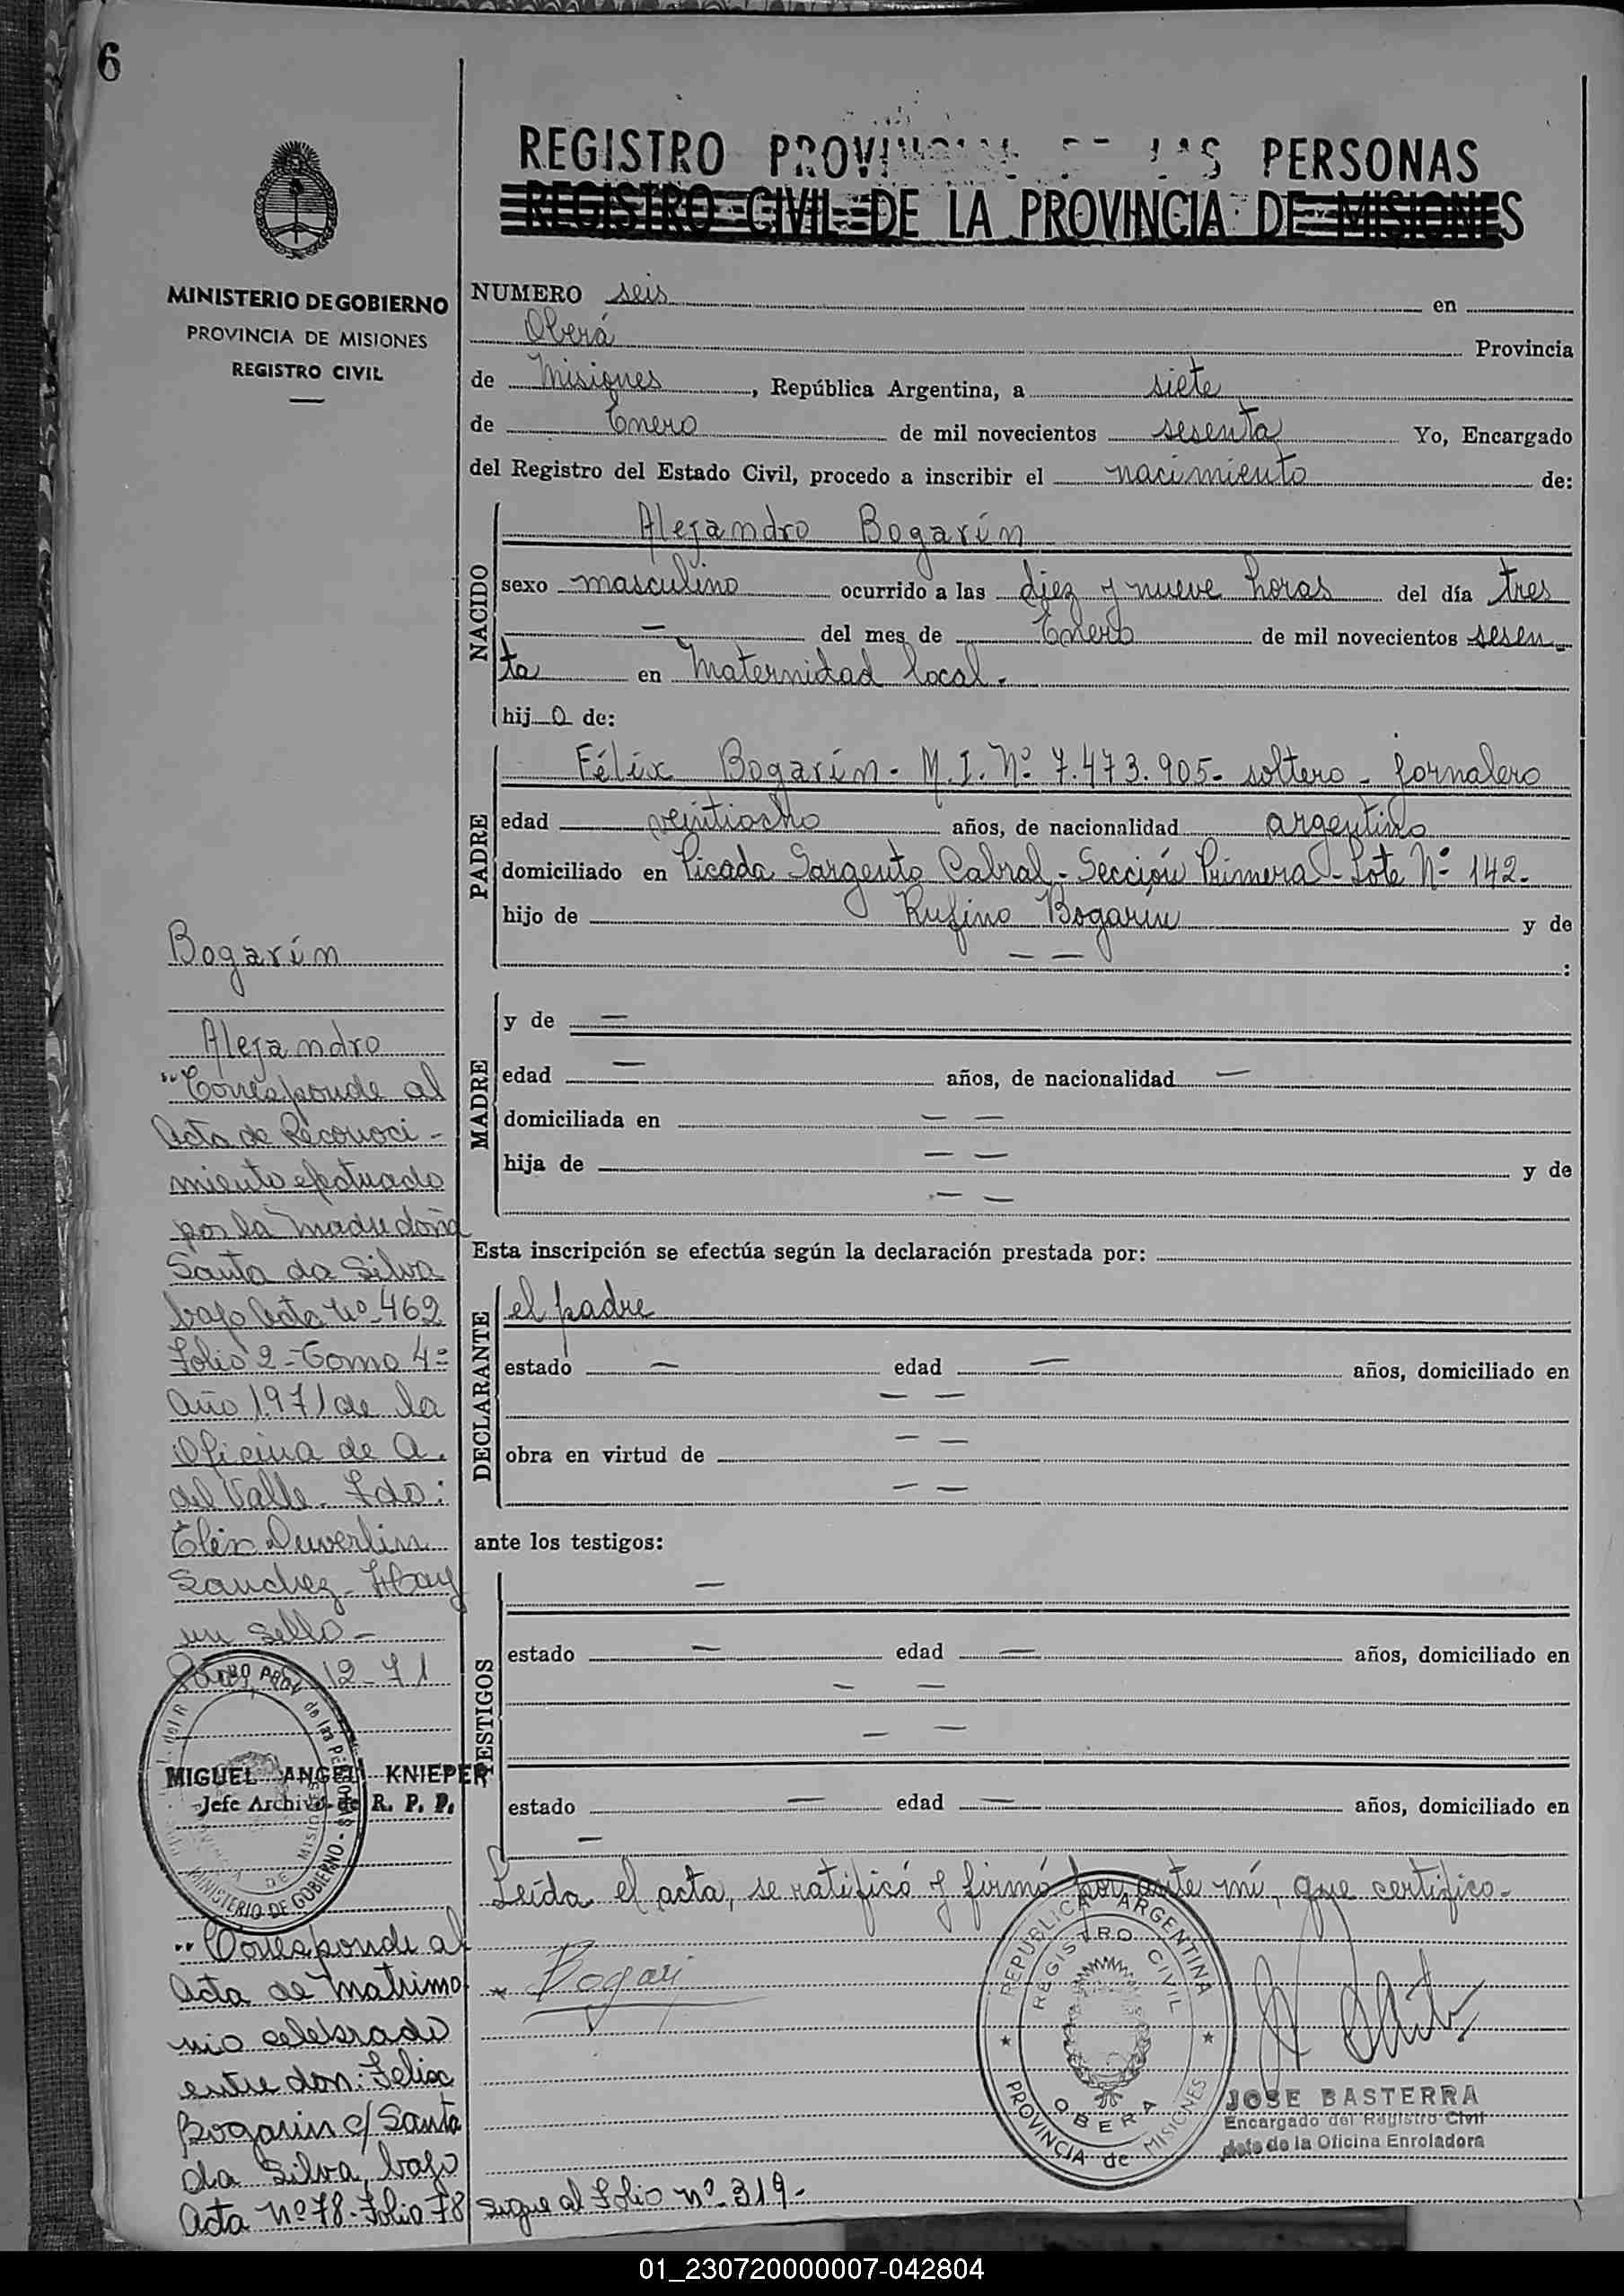 6
REGISTRO PROVINCIAL DE LAS PERSONAS
REGISTRO CIVIL DE LA PROVINCIA DE MISIONES
MINISTERIO DE GOBIERNO
PROVINCIA DE MISIONES
REGISTRO CIVIL
NUMERO seis en
Oberá Provincia
de Misiones, República Argentina, a siete
de Enero de mil novecientos sesenta Yo, Encargado
del Registro del Estado Civil, procedo a inscribir el nacimiento de:
NACIDO
Alejandro Bogarín
sexo masculino ocurrido a las diez y nueve horas del día tres
— del mes de Enero de mil novecientos sesen
ta en Maternidad local.
hijo de:
PADRE
Félix Bogarín - M.I. Nº 7.473.905 - soltero - jornalero
edad veintiocho años, de nacionalidad argentino
domiciliado en Picada Sargento Cabral - Sección Primera - Lote Nº 142 -
hijo de Rufino Bogarín y de
— — :
MADRE
y de —
edad — años, de nacionalidad —
domiciliada en — —
hija de — — y de
— —
Esta inscripción se efectúa según la declaración prestada por:
DECLARANTE
el padre
estado — edad — años, domiciliado en
— —
obra en virtud de — —
— —
ante los testigos:
TESTIGOS
—
estado — edad — años, domiciliado en
— —
— —
estado — edad — años, domiciliado en
—
Leída el acta, se ratificó y firmó por ante mí, que certifico -
Bogari
REPUBLICA ARGENTINA
REGISTRO CIVIL
OBERA
PROVINCIA de MISIONES
JOSE BASTERRA
Encargado del Registro Civil
Jefe de la Oficina Enroladora
sigue al folio nº 319 -
Bogarín
Alejandro
"Corresponde al
Acta de Reconoci-
miento efectuado
por la madre doña
Santa da Silva
bajo Acta Nº 462
Folio 2 - Tomo 4º
Año 1971 de la
Oficina de A.
del Valle. Fdo:
Duverlin
Sanchez - Hay
un sello -
12-71
MIGUEL ANGEL KNIEPER
Jefe Archivo de R. P. P.
MINISTERIO DE GOBIERNO
"Corresponde al
Acta de Matrimo
nio celebrado
entre don: Felix
Bogarin c/ Santa
da Silva, bajo
Acta Nº 78 - Folio 78
01_230720000007-042804